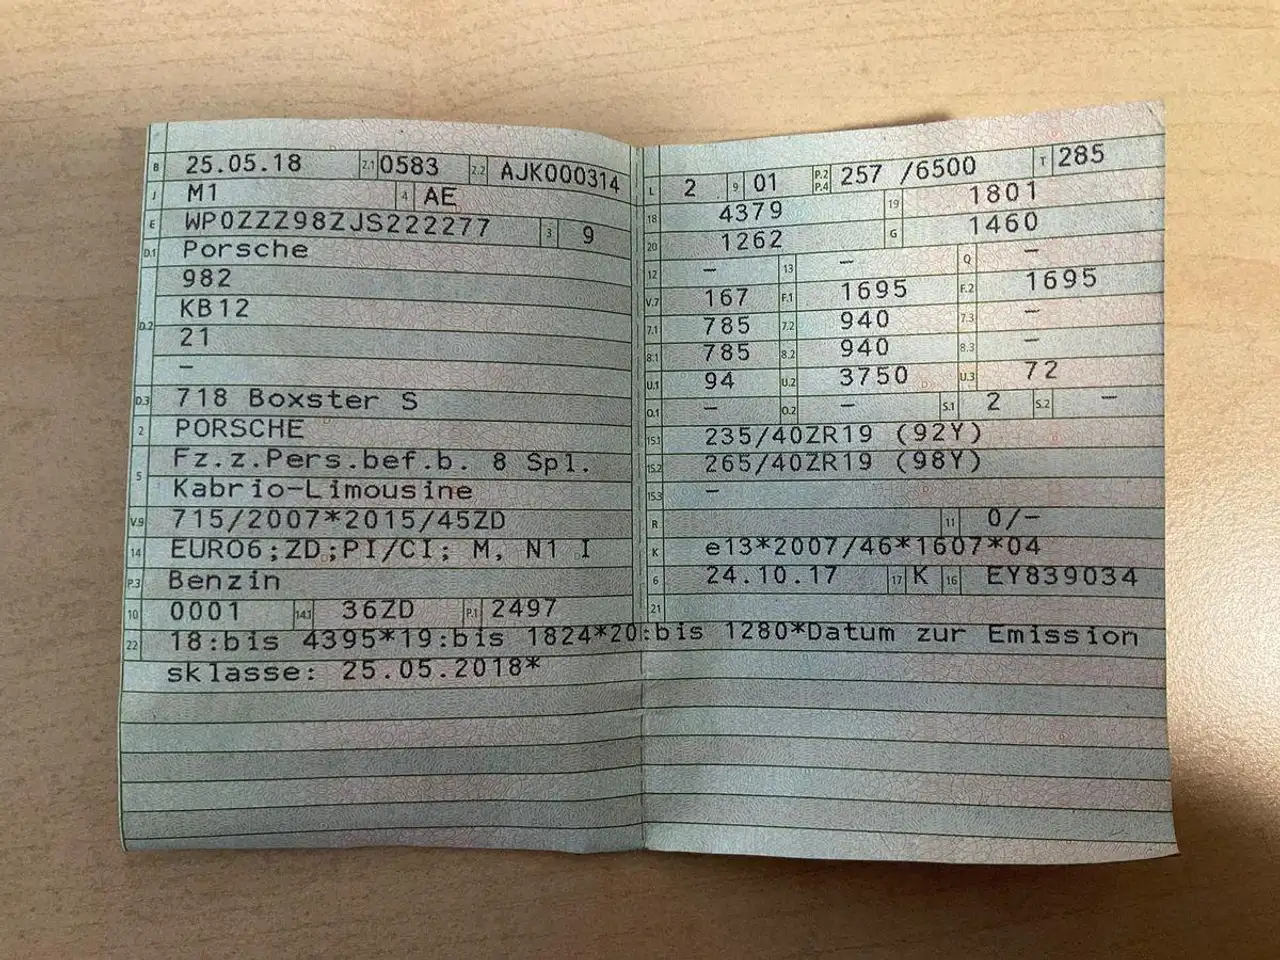 B 25.05.18 2.1 0583 2.2 AJK000314
J M1 4 AE
E WP0ZZZ98ZJS222277 3 9
D.1 Porsche
982
D.2 KB12
21
–
D.3 718 Boxster S
2 PORSCHE
5 Fz.z.Pers.bef.b. 8 Spl.
Kabrio-Limousine
V.9 715/2007*2015/45ZD
14 EURO6;ZD;PI/CI; M, N1 I
P.3 Benzin
10 0001 14.1 36ZD P.1 2497
L 2 9 01 P.2 P.4 257 /6500 T 285
18 4379 19 1801
20 1262 G 1460
12 – 13 – Q –
V.7 167 F.1 1695 F.2 1695
7.1 785 7.2 940 7.3 –
8.1 785 8.2 940 8.3 –
U.1 94 U.2 3750 U.3 72
O.1 – O.2 – S.1 2 S.2 –
15.1 235/40ZR19 (92Y)
15.2 265/40ZR19 (98Y)
15.3 –
R 11 0/–
K e13*2007/46*1607*04
6 24.10.17 17 K 16 EY839034
21
22 18:bis 4395*19:bis 1824*20:bis 1280*Datum zur Emission
sklasse: 25.05.2018*